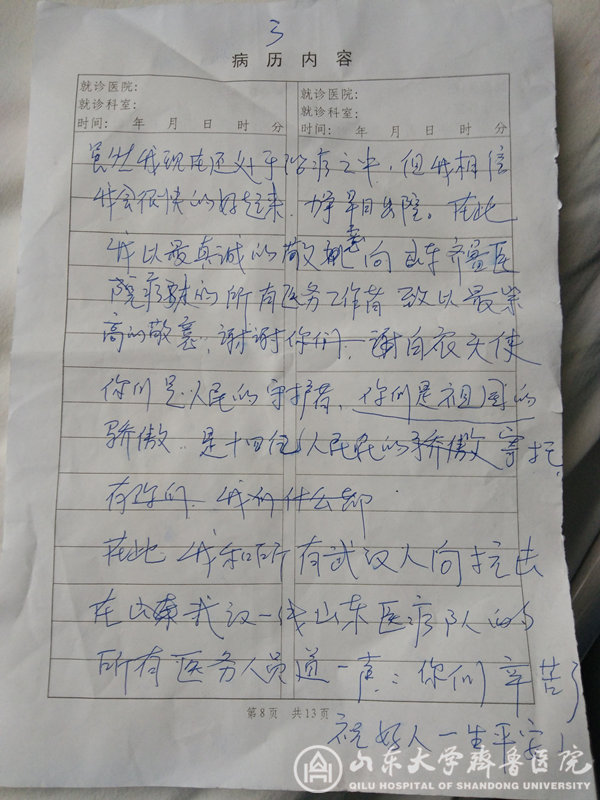 3
病 历 内 容
就诊医院: 就诊医院:
就诊科室: 就诊科室:
时间: 年 月 日 时 分 时间: 年 月 日 时 分
虽然我现在还处于治疗之中，但我相信
我会很快的好起来，争早日出院。在此
我以最真诚的敬意向山东齐鲁医
院的所有医务工作者致以最崇
高的敬意，谢谢你们，谢白衣天使
你们是人民的守护者，你们是祖国的
骄傲，是十四亿人民的骄傲
有你们，我们什么都
在此，我和所有武汉人向
在 一线山东医疗队的
所有医务人员道一声：你们辛苦了
第8页 共13页
祝好人一生平安！
山东大学齐鲁医院
QILU HOSPITAL OF SHANDONG UNIVERSITY